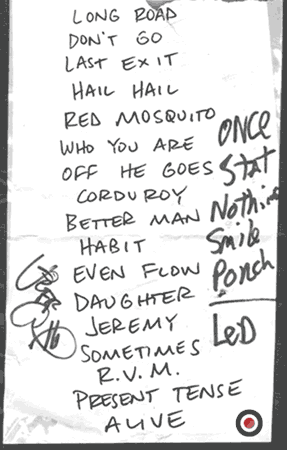 LONG ROAD
DON'T GO
LAST EXIT
HAIL HAIL
RED MOSQUITO
WHO YOU ARE
OFF HE GOES
CORDUROY
BETTER MAN
HABIT
EVEN FLOW
DAUGHTER
JEREMY
SOMETIMES
R.V.M.
PRESENT TENSE
ALIVE
ONCE
Stat
Nothin
Smile
Porch
LeD